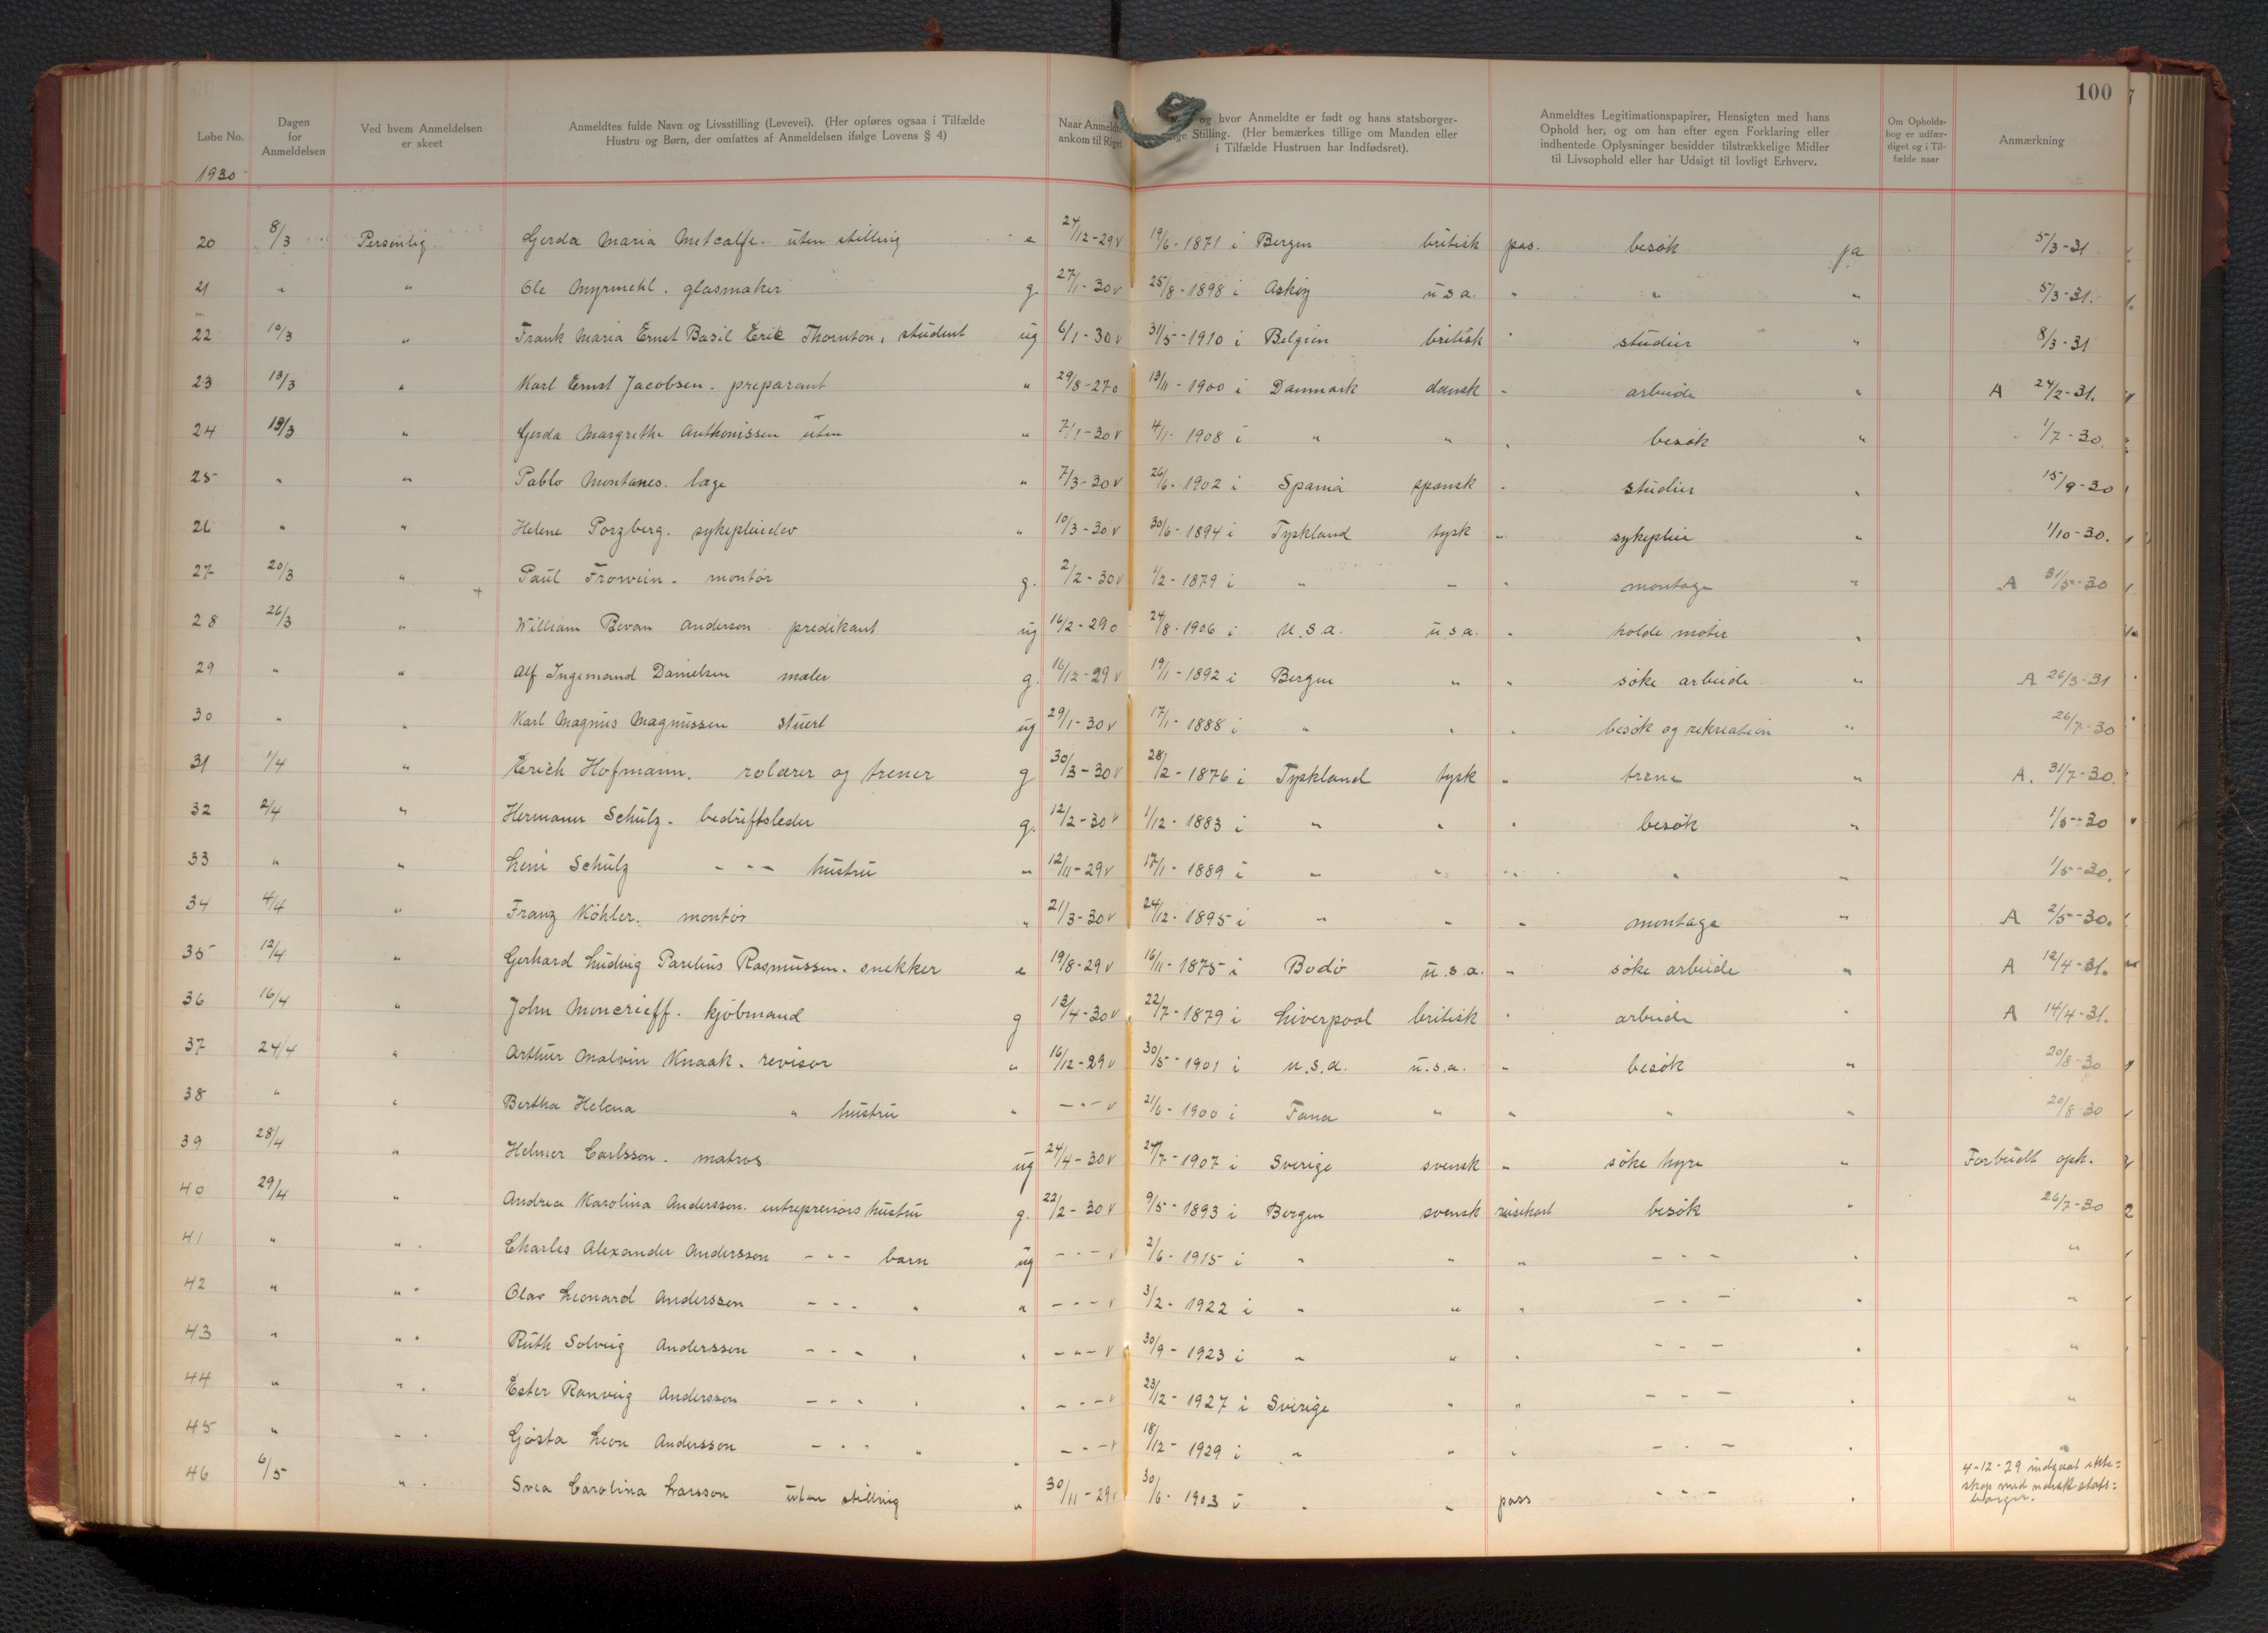 100
Løbe No.
Dagen for Anmeldelsen
Ved hvem Anmeldelsen er skeet
Anmeldtes fulde Navn og Livsstilling (Levevei). (Her opføres ogsaa i Tilfælde Hustru og Børn, der omfattes af Anmeldelsen ifølge Lovens § 4)
Naar Anmeldte ankom til Riget
og hvor Anmeldte er født og hans statsborgerlige Stilling. (Her bemærkes tillige om Manden eller i Tilfælde Hustruen har Indfødsret).
Anmeldtes Legitimationspapirer, Hensigten med hans Ophold her, og om han efter egen Forklaring eller indhentede Oplysninger besidder tilstrækkelige Midler til Livsophold eller har Udsigt til lovligt Erhverv.
Om Opholdsbog er udfærdiget og i Tilfælde naar
Anmærkning
1930
20 8/3 Personlig Gerda Maria Metcalfe. uten stilling e 27/12-29 v 19/6-1871 i Bergen britisk pas. besøk ja 5/3-31
21 " " Ole Myrmehl. glasmaker g 27/1-30 v 25/8-1898 i Askøy u.s.a. " " " 5/3-31.
22 10/3 " Frank Maria Ernst Basil Eric Thornton, student ug 6/1-30 v 31/5-1910 i Belgien britisk " studier " 8/3-31
23 13/3 " Karl Ernst Jacobsen. preparant " 29/8-27 o 13/11-1900 i Danmark dansk " arbeide " A 24/2-31.
24 13/3 " Gerda Margrethe Anthonissen uten " 7/1-30 v 4/1-1908 i " " " besøk " 1/7-30.
25 " " Pablo Montanes. læge " 7/3-30 v 26/6-1902 i Spania spansk " studier " 15/9-30
26 " " Helene Porzberg. sykepleiedev " 10/3-30 v 30/6-1894 i Tyskland tysk " sykepleie " 1/10-30.
27 20/3 " Paul Frowein. montör g. 2/2-30 v 1/2-1879 i " " " montage " A 31/5-30
28 26/3 " William Bevan Anderson predikant ug 16/2-29 o 24/8-1906 i U.S.a. u.s.a. " holde møter "
29 " " Alf Ingemand Danielsen maler g. 16/12-29 v 19/1-1892 i Bergen " " søke arbeide " A 26/3-31
30 " " Karl Magnus Magnussen stuert ug 29/1-30 v 17/1-1888 i " " " besøk og rekreation " 26/7-30
31 1/4 " Erich Hofmann. rolærer og trener g 30/3-30 v 28/2-1876 i Tyskland tysk " trene " A. 31/7-30.
32 2/4 " Hermann Schulz. bedriftsleder g. 12/2-30 v 1/12-1883 i " " " besøk " 1/5-30
33 " " Leni Schulz - " - hustru " 12/11-29 v 17/1-1889 i " " " " " 1/5-30.
34 4/4 " Franz Köhler. montör " 21/3-30 v 24/12-1895 i " " " montage " A 2/5-30.
35 12/4 " Gerhard Ludvig Parelius Rasmussen. snekker e 19/8-29 v 16/11-1875 i Bodö u.s.a. " søke arbeide " A 12/4-31.
36 16/4 " John Moncrieff. kjöbmand g 13/4-30 v 22/7-1879 i Liverpool britisk " arbeide " A 14/4-31.
37 24/4 " Arthur Malvin Knaak. revisor " 16/12-29 v 30/5-1901 i U.S.a. u.s.a. " besøk " 20/8-30
38 " " Bertha Helena " hustru " - " - v 21/6-1900 i Fana " " " " 20/8-30
39 28/4 " Helmer Carlsson. matros ug 24/4-30 v 27/7-1907 i Sverige svensk " søke hyre " Forbudt oph.
40 29/4 " Andrea Karolina Andersson. entreprenørs hustru g. 22/2-30 v 9/5-1893 i Bergen svensk reisekort besøk " 26/7-30
41 " " Charles Alexander Andersson - " - barn ug - " - v 2/6-1915 i " " " - " - " "
42 " " Olav Leonard Andersson - " - " " - " - v 3/2-1922 i " " " - " - " "
43 " " Ruth Solveig Andersson - " - " " - " - v 30/9-1923 i " " " - " - " "
44 " " Ester Ranveig Andersson - " - " " - " - v 23/12-1927 i Sverige " " - " - " "
45 " " Gösta Leon Andersson - " - " " - " - v 18/12-1929 i " " " - " - " "
46 6/5 " Svea Carolina Larsson uten stilling " 30/11-29 v 30/6-1903 i " " pass - " - "
4-12-29 indgaat ekte=
skap med norsk stats=
borger.